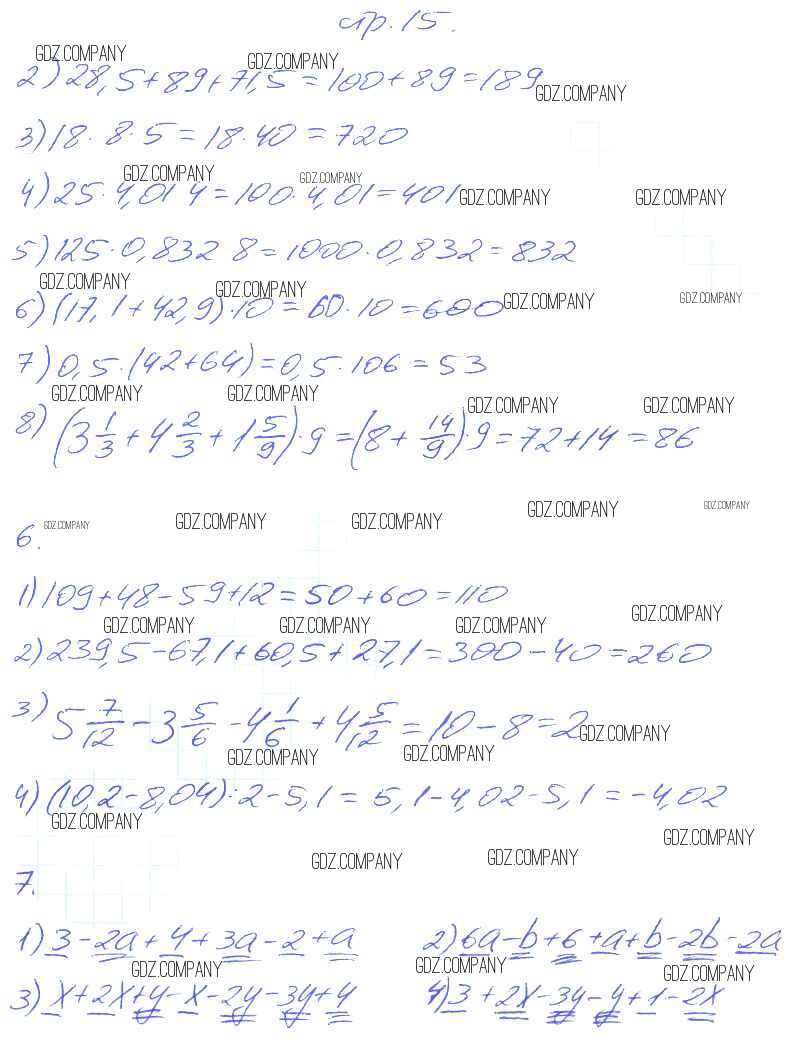 стр. 15.
GDZ.COMPANY GDZ.COMPANY
2) 28,5+89+71,5=100+89=189
GDZ.COMPANY
3) 18·8·5=18·40=720
GDZ.COMPANY GDZ.COMPANY
4) 25·4,01 4=100·4,01=401
GDZ.COMPANY GDZ.COMPANY
5) 125·0,832 8=1000·0,832=832
GDZ.COMPANY GDZ.COMPANY
6) (17,1+42,9)·10=60·10=600
GDZ.COMPANY GDZ.COMPANY
7) 0,5·(42+64)=0,5·106=53
GDZ.COMPANY GDZ.COMPANY GDZ.COMPANY GDZ.COMPANY
8) (3 1/3 + 4 2/3 + 1 5/9)·9=(8+ 14/9)·9=72+14=86
GDZ.COMPANY GDZ.COMPANY GDZ.COMPANY GDZ.COMPANY GDZ.COMPANY
6.
1) 109+48-59+12=50+60=110
GDZ.COMPANY GDZ.COMPANY GDZ.COMPANY GDZ.COMPANY
2) 239,5-67,1+60,5+27,1=300-40=260
3) 5 7/12 - 3 5/6 - 4 1/6 + 4 5/12 = 10-8=2
GDZ.COMPANY GDZ.COMPANY GDZ.COMPANY
4) (10,2-8,04):2-5,1=5,1-4,02-5,1=-4,02
GDZ.COMPANY GDZ.COMPANY
GDZ.COMPANY GDZ.COMPANY
7.
1) 3-2a+4+3a-2+a 2) 6a-b+6+a+b-2b-2a
GDZ.COMPANY GDZ.COMPANY GDZ.COMPANY
3) x+2x+y-x-2y-3y+4 4) 3+2x-3y-y+1-2x